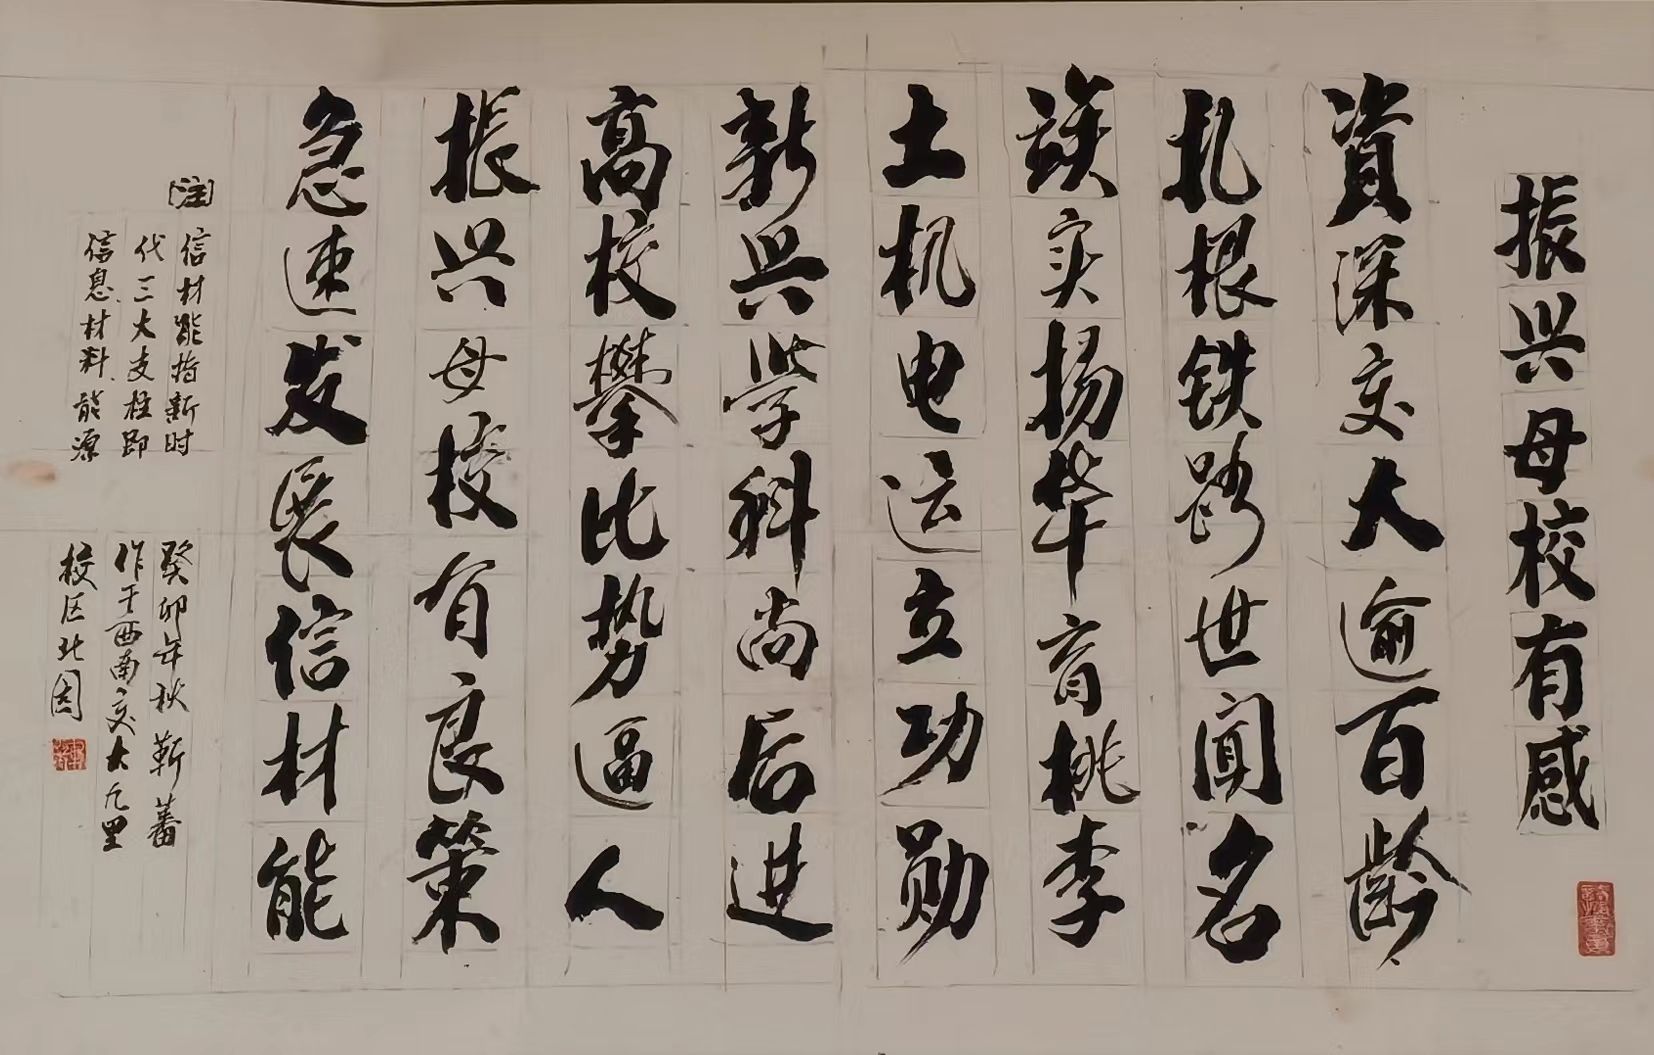 振兴母校有感
資深交大逾百齡
扎根铁路世闻名
竢实扬华育桃李
土机电运立功勋
新兴学科尚后进
高校攀比势逼人
振兴母校有良策
急速发展信材能
[注]
信材能指新时
代三大支柱即
信息.材料.能源
癸卯年秋靳蕃
作于西南交大九里
校区北园